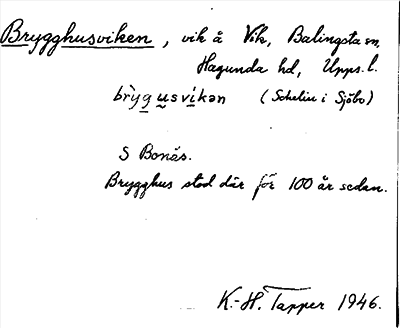 Brygghusviken, vik å Vik, Balingsta sn,
Hagunda hd, Upps. l.
brỳg usvikən (Schelin i Sjöbo)
S Bonäs.
Brygghus stod där för 100 år sedan.
K.-H. Tapper 1946.